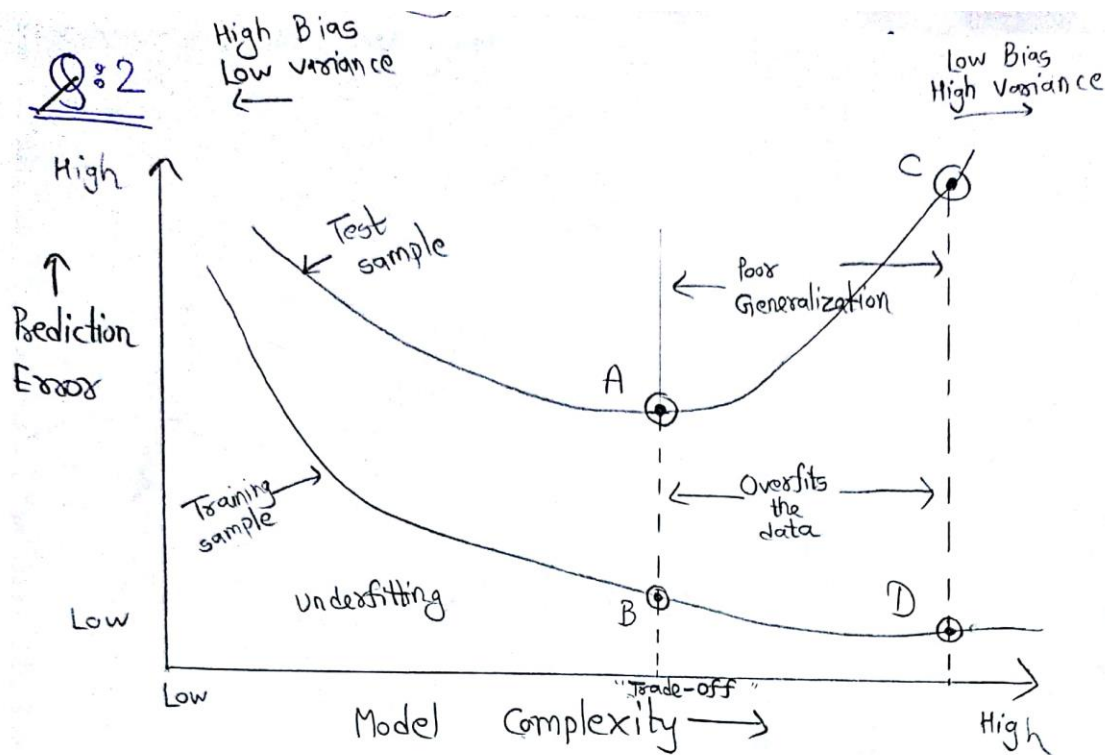 High Bias
Low variance
←
Q:2
Low Bias
High Variance
→
High
C
Test
sample
Poor
Generalization
Prediction
Error
A
Training
sample
Overfits
the
data
underfitting
B
D
Low
Low
"Trade-off"
Model Complexity →
High